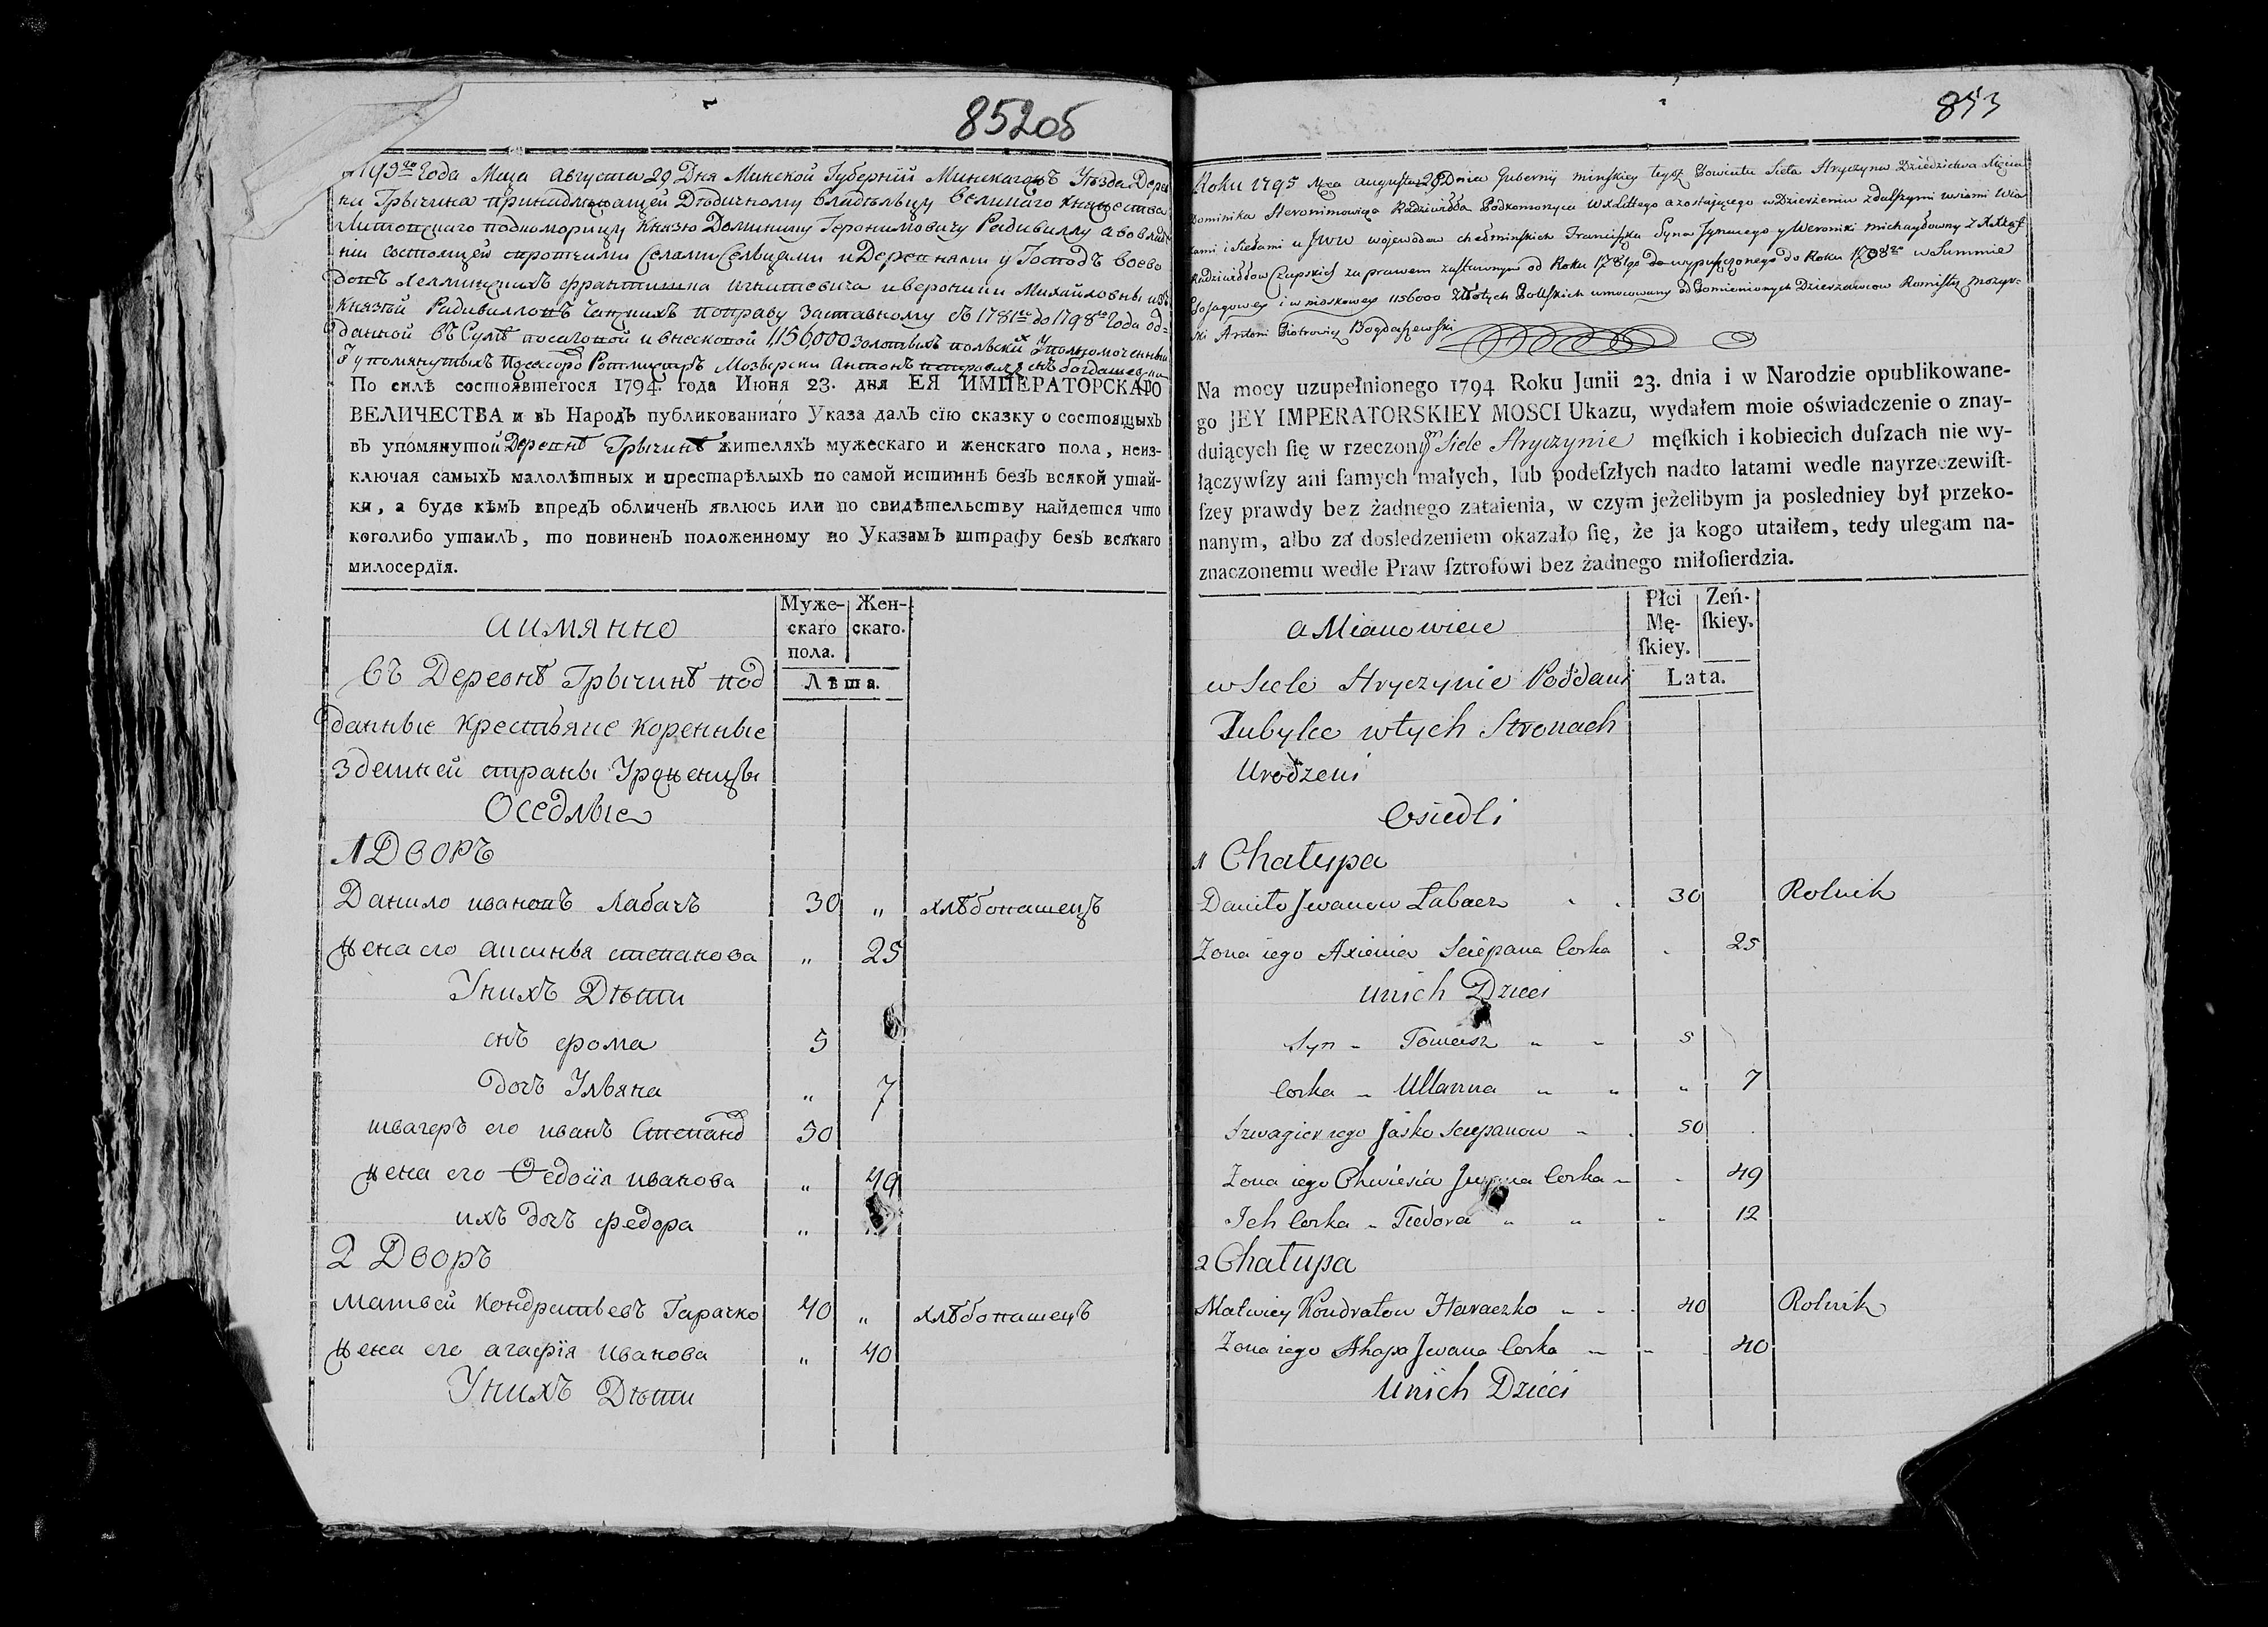 852об
1795го Года Мца Августа 29 Дня Минской Губерніи Минскагожъ Уѣзда Дерев
ни Грычина принадлежащей Дѣдичному владѣльцу Великаго Княжества
Литовскаго подкоморицу Князю Доминику Геронимовичу Радивиллу а во владѣ
ніи состоящей спротчими Селами Сельцами и Деревнями у Господъ воево
довъ Хелминскихъ Франтишка игнатьевича и вероники Михайловны изъ
Князей Радивилловъ Чапскихъ поправу Заставному съ 1781го до 1798го Года од=
данной въ Сумѣ посаговой и вноскопой 1,156,000 золотыхъ полскихъ Уполномоченный
ѿ упомянутыхъ Посессоровъ Ротмистръ Мозырски Антонъ петровичъ снъ богдашевски
По силѣ состоявшегося 1794 года Июня 23. дня ЕЯ ИМПЕРАТОРСКАГО
ВЕЛИЧЕСТВА и въ Народъ публикованнаго Указа далъ сїю сказку о состоящыхъ
въ упомянутой Деревнѣ Грычинѣ жителяхъ мужескаго и женскаго пола, неиз-
ключая самыхъ малолѣтныхъ и престарѣлыхъ по самой истиннѣ безъ всякой утай-
ки, а буде кѣмъ впредъ обличенъ явлюсь или по свидѣтельству найдется что
коголибо утаилъ, то повиненъ положенному по Указамъ штрафу безъ всякаго
милосердїя.
аимянно
Муже-
скаго
пола.
Жен-
скаго.
Лѣта.
въ Деревнѣ Грычинѣ под
данные крестьяне коренные
здешней страны Уроженцы
Оседлые
1 Дворъ
Данило ивановъ Лабачъ 30 „ хлѣбопашецъ
жена его аксинья степанова „ 25
Унихъ Дѣти
снъ фома 5
дочъ Ульяна „ 7
швагеръ его иванъ Степанов 50
жена его Ѳедосія иванова „ 49
ихъ дочъ федора „
2 Дворъ
Матвей Кондратьевъ Гарачко 40 „ хлѣбопашецъ
жена его агафія иванова „ 40
Унихъ Дѣти
853
Roku 1795 Mca Augusta 29 Dnia Gubernij minskiey tegoż Powiatu Sieła Hryczyna Dziedzictwa Xięcia
Dominika Heronimowicza Radziwiłła Podkomorzyca WXLittego a zostaiącego w Dzierżeniu zdalszymi wsiami Wio
skami i Siełami u JWW Wojewodow chełminskich Franciszka Syna Jgnacego y Weroniki michayłowny z Xiążąt
Radziwiłłow Czapskich za prawem zastawnym od Roku 1781go do wypuszczonego do Roku 1798go w Summie
Posagowey i wnioskowey 1156000 złotych Polskich umocowany od Pomienionych Dzierżawcow Rotmistrz mozyr-
ski Antoni Piotrowicz Bogdaszewski
Na mocy uzupełnionego 1794 Roku Junii 23. dnia i w Narodzie opublikowane-
go JEY IMPERATORSKIEY MOSCI Ukazu, wydałem moie oświadczenie o znay-
duiących ſię w rzeczonym Siele Hryczynie męſkich i kobiecich duſzach nie wy-
łączywſzy ani ſamych małych, lub podeſzłych nadto latami wedle nayrzeczewiſt-
ſzey prawdy bez żadnego zataienia, w czym jeżelibym ja posledniey był przeko-
nanym, albo za dosledzeniem okazało ſię, że ja kogo utaiłem, tedy ulegam na-
znaczonemu wedle Praw ſztrofowi bez żadnego miłoſierdzia.
a Mianowicie
Płci
Mę-
ſkiey.
Zeń-
ſkiey.
Lata.
w Siele Hryczynie Poddani
Tubylce wtych Stronach
Urodzeni
Osiedli
1 Chałupa
Daniło Jwanow Łabacz 30 Rolnik
Żona iego Axienia Sciepana Corka 25
Unich Dzieci
Syn - Tomasz 5
Corka - Ullanna 7
Szwagier iego Jaśko Sciepanow 50
Zona iego Chwiesia Jwana Corka 49
Jch Corka - Fiedora 12
2 Chałupa
Matwiey Kondratow Haraczko 40 Rolnik
Zona iego Ahapa Jwana Corka 40
Unich Dzieci